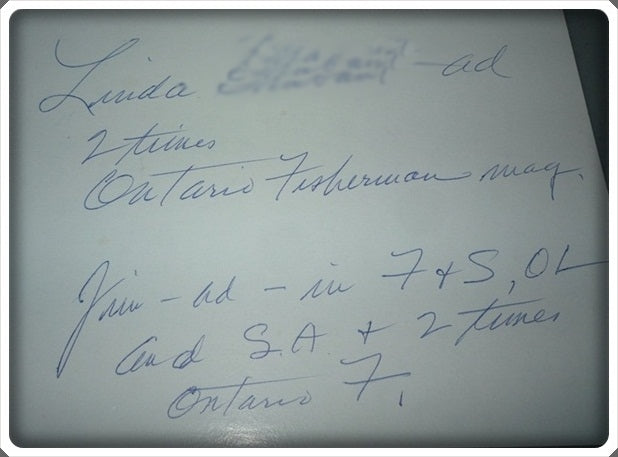 Linda - ad
2 times
Ontario Fisherman mag.
Jim - ad - in F + S, OL
and S.A + 2 times
Ontario F,